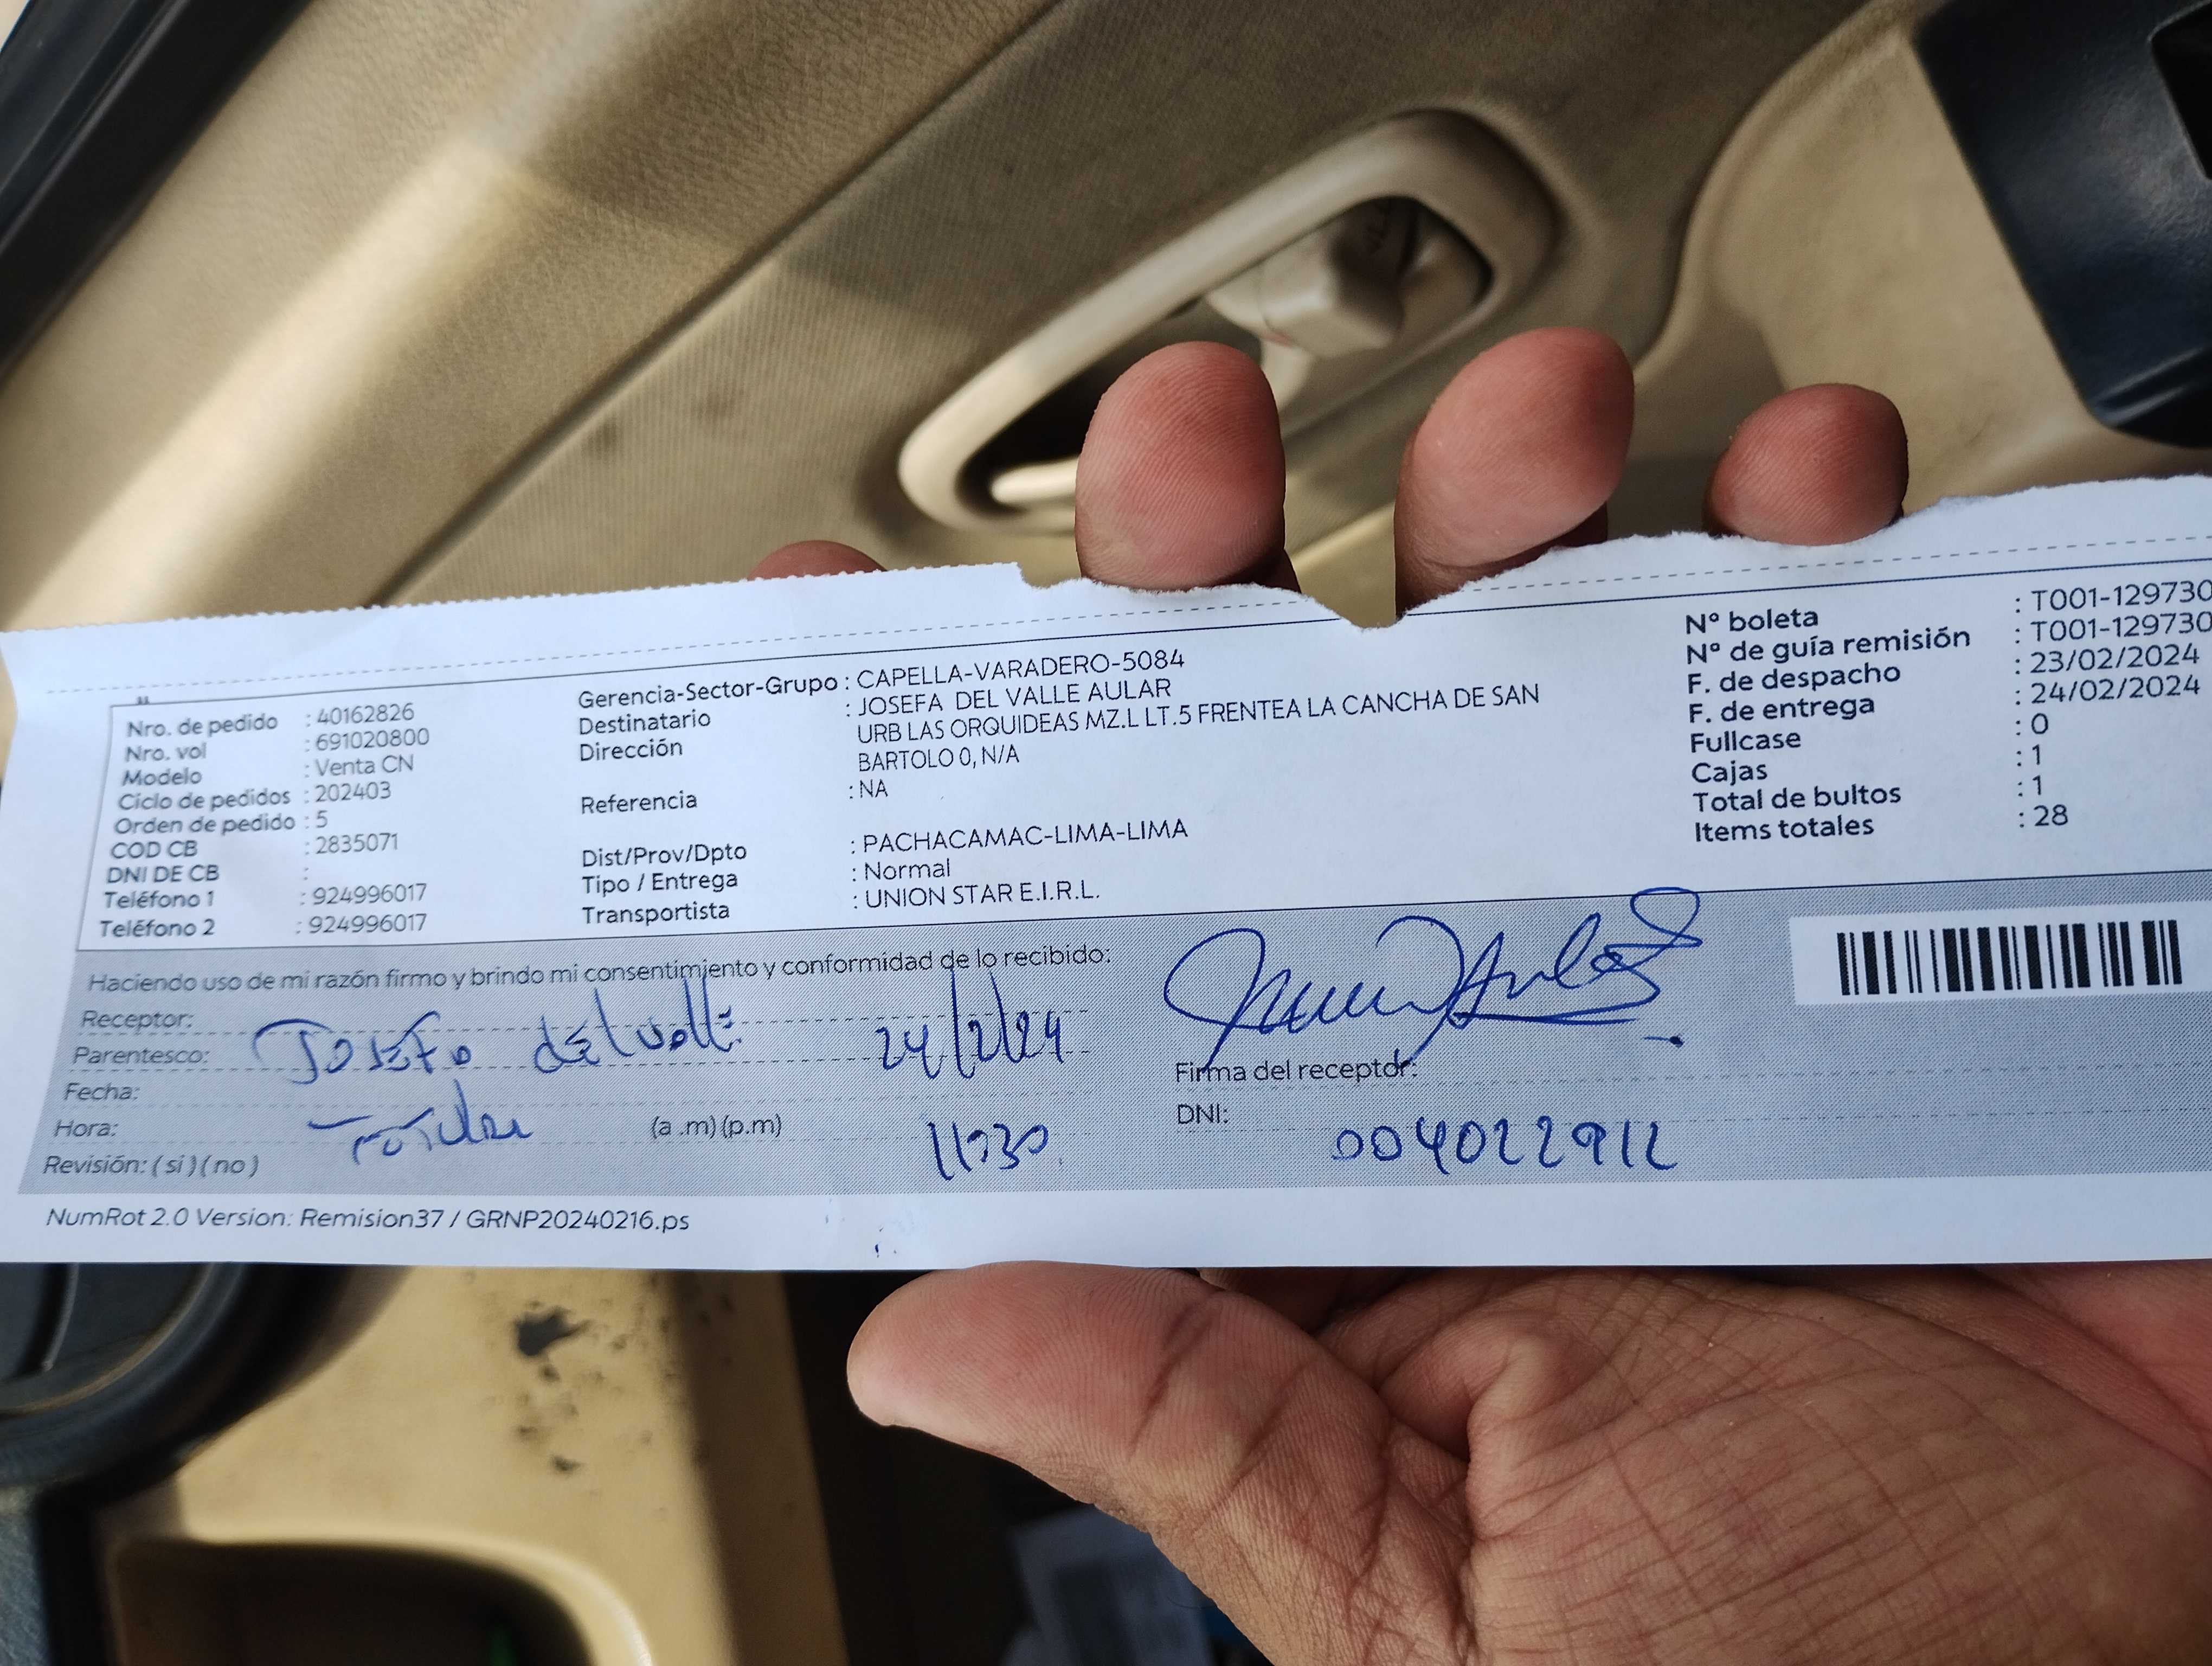 Nro. de pedido : 40162826
Nro. vol : 691020800
Modelo : Venta CN
Ciclo de pedidos : 202403
Orden de pedido : 5
COD CB : 2835071
DNI DE CB :
Teléfono 1 : 924996017
Teléfono 2 : 924996017
Gerencia-Sector-Grupo : CAPELLA-VARADERO-5084
Destinatario : JOSEFA DEL VALLE AULAR
Dirección URB LAS ORQUIDEAS MZ.L LT.5 FRENTEA LA CANCHA DE SAN
BARTOLO 0, N/A
Referencia : NA
Dist/Prov/Dpto : PACHACAMAC-LIMA-LIMA
Tipo / Entrega : Normal
Transportista : UNION STAR E.I.R.L.
Nº boleta : T001-129730
Nº de guía remisión : T001-129730
F. de despacho : 23/02/2024
F. de entrega : 24/02/2024
Fullcase : 0
Cajas : 1
Total de bultos : 1
Items totales : 28
Haciendo uso de mi razón firmo y brindo mi consentimiento y conformidad de lo recibido:
Receptor:
Parentesco: Josefa del valle 24/2/24
Fecha:
Hora: (a .m) (p.m) 11:30
Revisión: ( si ) ( no )
Firma del receptor:
DNI: 004022912
NumRot 2.0 Version: Remision37 / GRNP20240216.ps